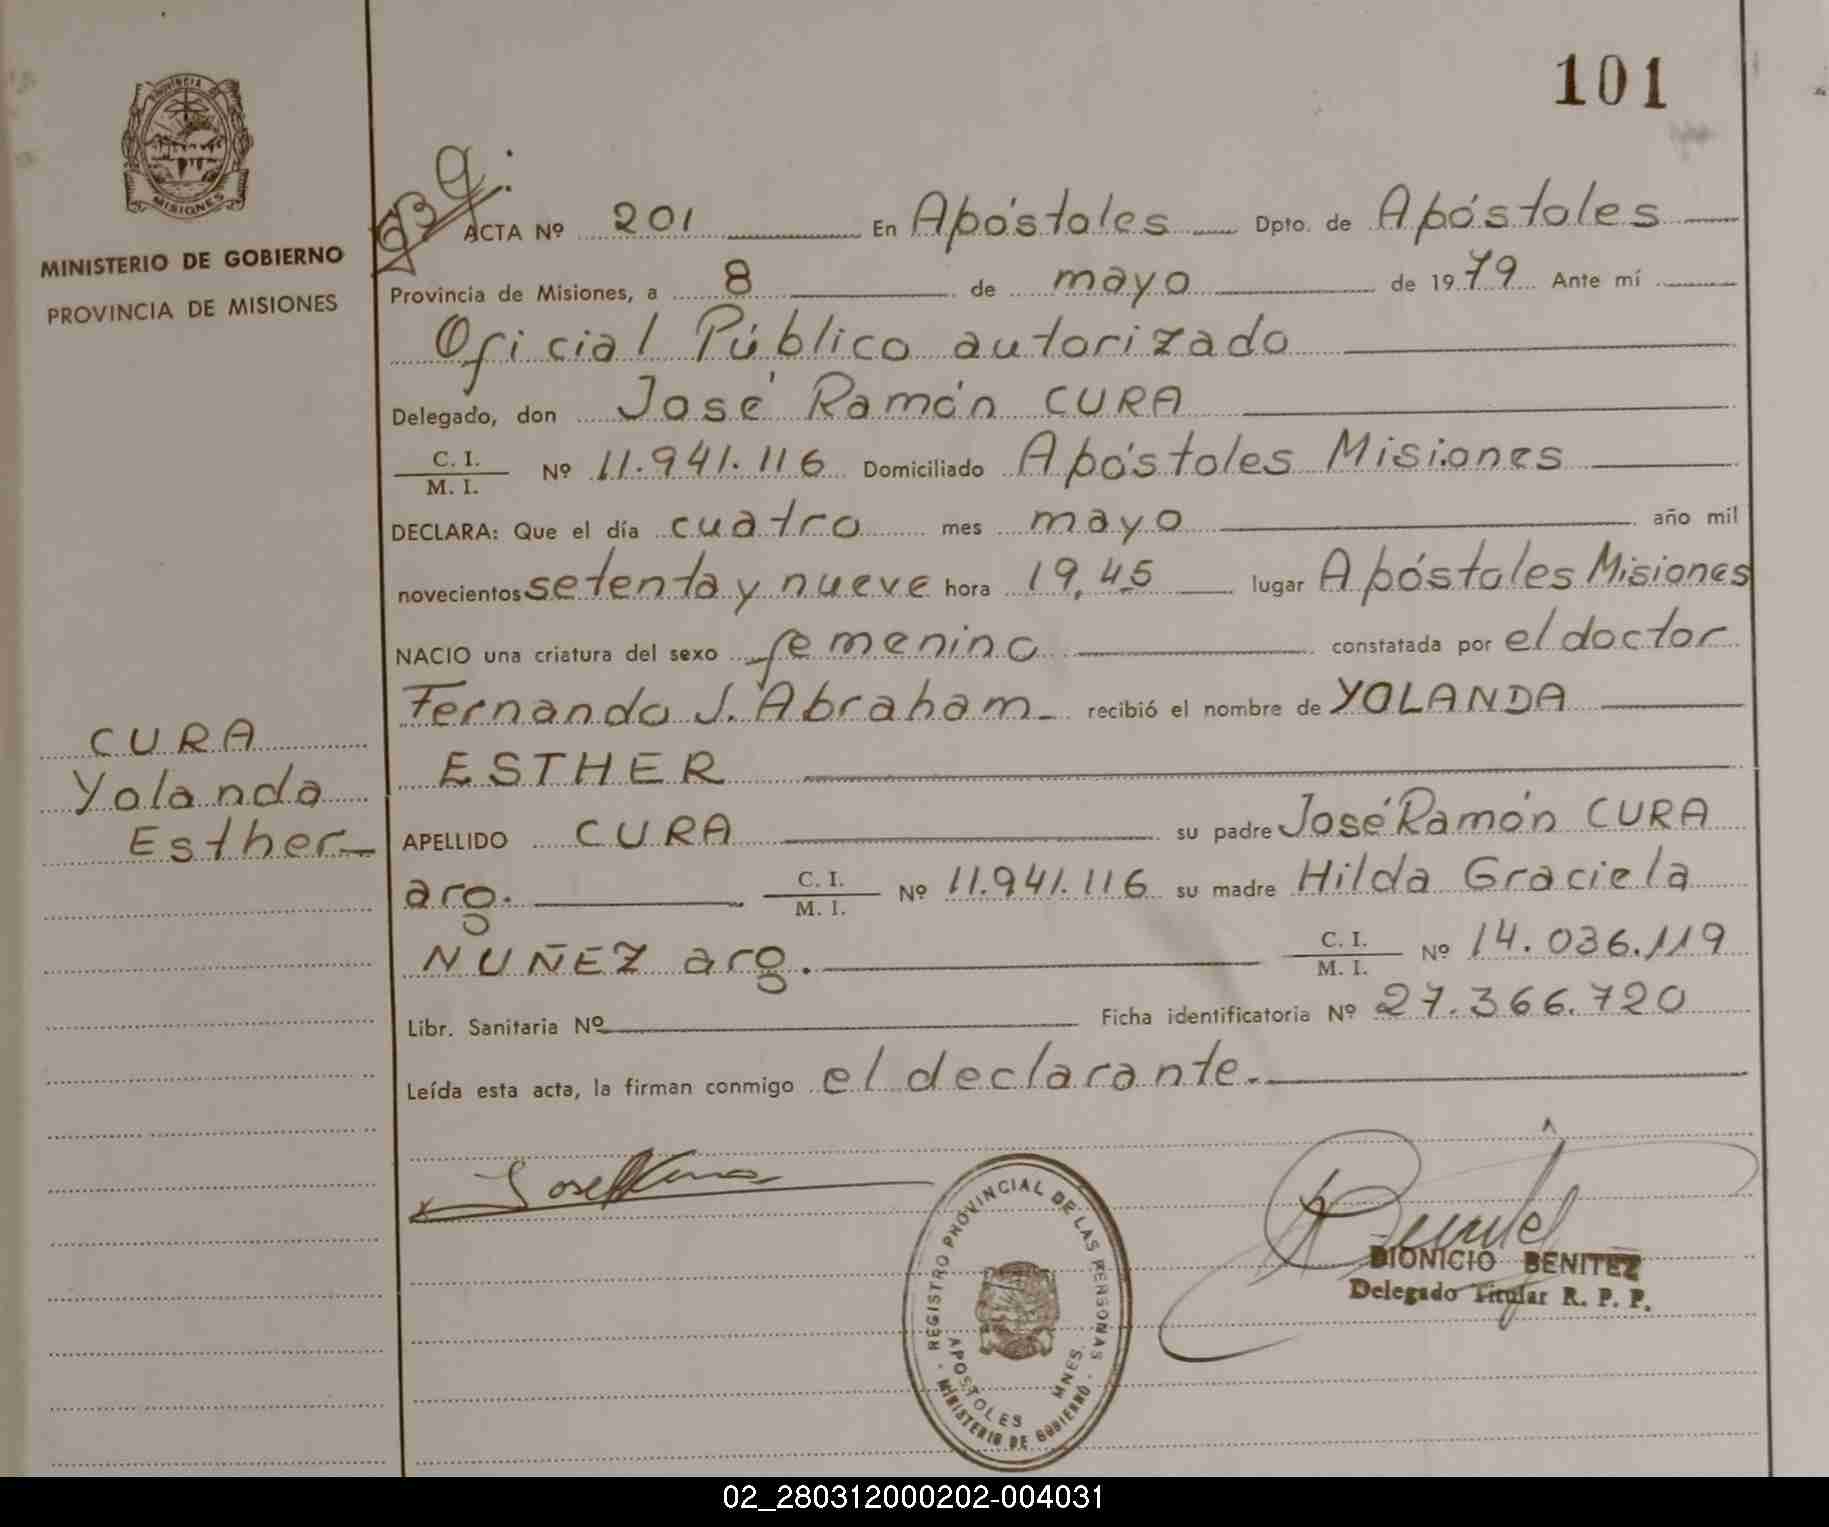 101
PROVINCIA DE
MISIONES
MINISTERIO DE GOBIERNO
PROVINCIA DE MISIONES
CURA
Yolanda
Esther
ACTA Nº 201 En Apóstoles Dpto. de Apóstoles
Provincia de Misiones, a 8 de mayo de 1979 Ante mí
Oficial Público autorizado
Delegado, don José Ramón CURA
C. I.
M. I. Nº 11.941.116 Domiciliado Apóstoles Misiones
DECLARA: Que el día cuatro mes mayo año mil
novecientos setenta y nueve hora 19,45 lugar Apóstoles Misiones
NACIO una criatura del sexo femenino constatada por el doctor
Fernando J. Abraham recibió el nombre de YOLANDA
ESTHER
APELLIDO CURA su padre José Ramón CURA
arg. C. I.
M. I. Nº 11.941.116 su madre Hilda Graciela
NUÑEZ arg. C. I.
M. I. Nº 14.036.119
Libr. Sanitaria Nº Ficha identificatoria Nº 27.366.720
Leída esta acta, la firman conmigo el declarante.
REGISTRO PROVINCIAL DE LAS PERSONAS
APOSTOLES MNES.
MINISTERIO DE GOBIERNO
DIONICIO BENITEZ
Delegado Titular R. P. P.
02_280312000202-004031